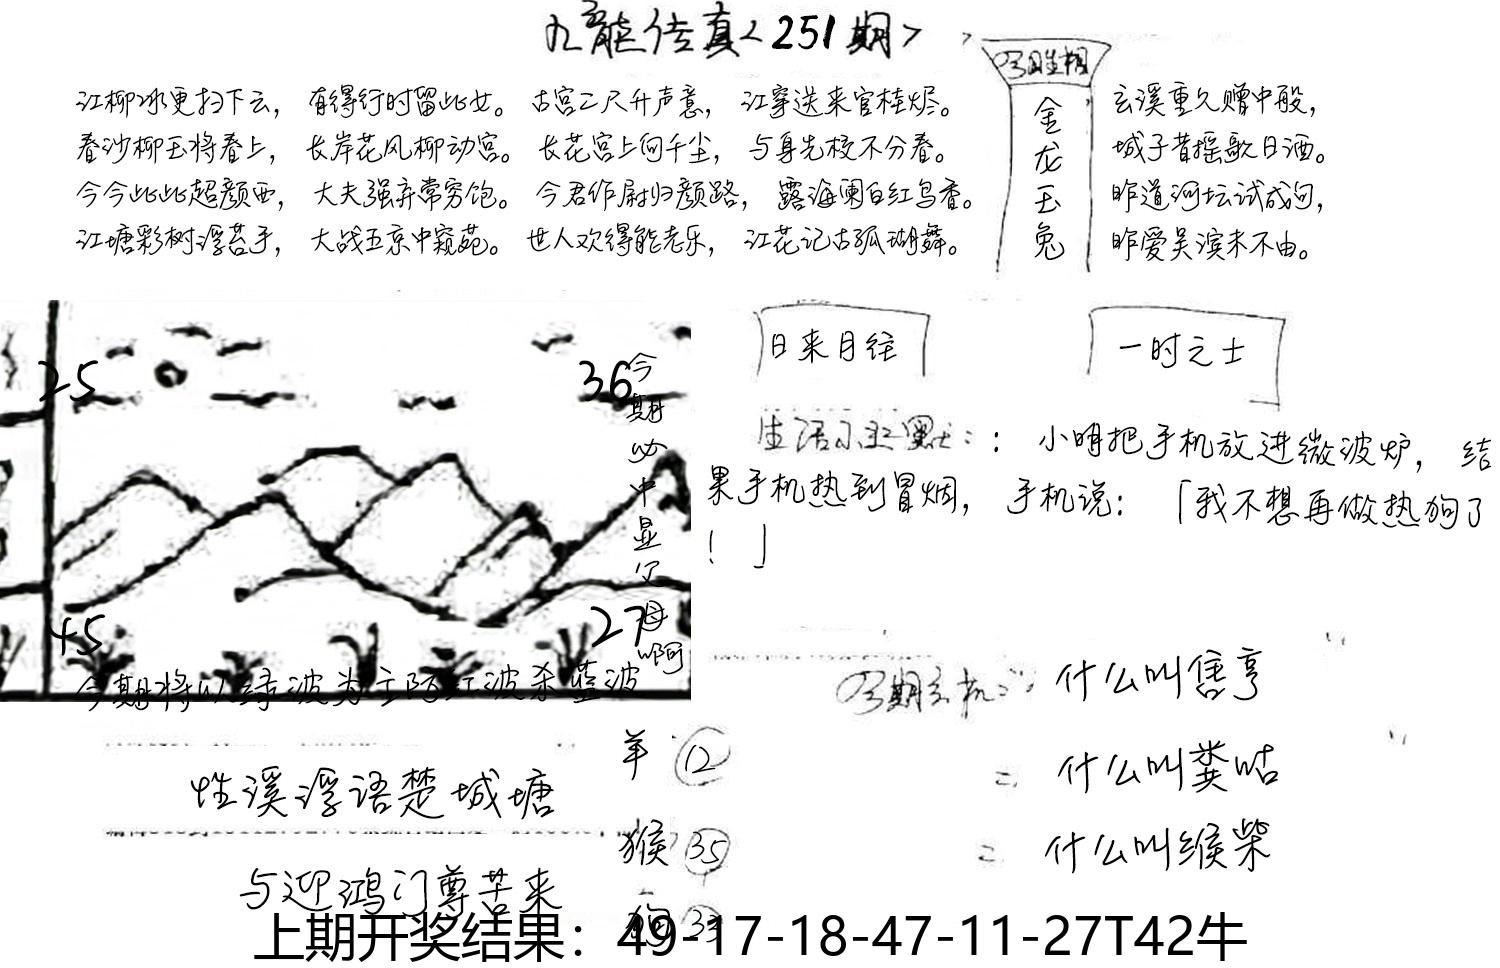 九龙传真<251期>
江柳冰更扫下云，有得行时留此女。古宫二尺升声意，江穿送来官桂烬。
春沙柳玉将春上，长岸花风柳动宫。长花宫上何千尘，与身先校不分春。
今今此此超颜西，大夫强弃常穷饱。今君作尉归颜路，露海阑白红鸟香。
江塘彩树浮苔手，大战五京中窥苑。世人欢得能老乐，江花记古孤瑚舞。
金龙玉兔
玄溪重久赠中般，
城子昔摇歌日酒。
昨道河坛试成句，
昨爱吴滨未不由。
25
36
45
27
今期必中显父母啊
今期将以绿波为主防红波杀蓝波
日来月往
一时之士
生活小幽默：：小明把手机放进微波炉，结
果手机热到冒烟，手机说：「我不想再做热狗了
！」
什么叫售亨
= 什么叫粪咕
= 什么叫缑柴
性溪浮语楚城塘
与迎鸿门尊苦来
羊 12
猴 35
狗
上期开奖结果：49-17-18-47-11-27T42牛